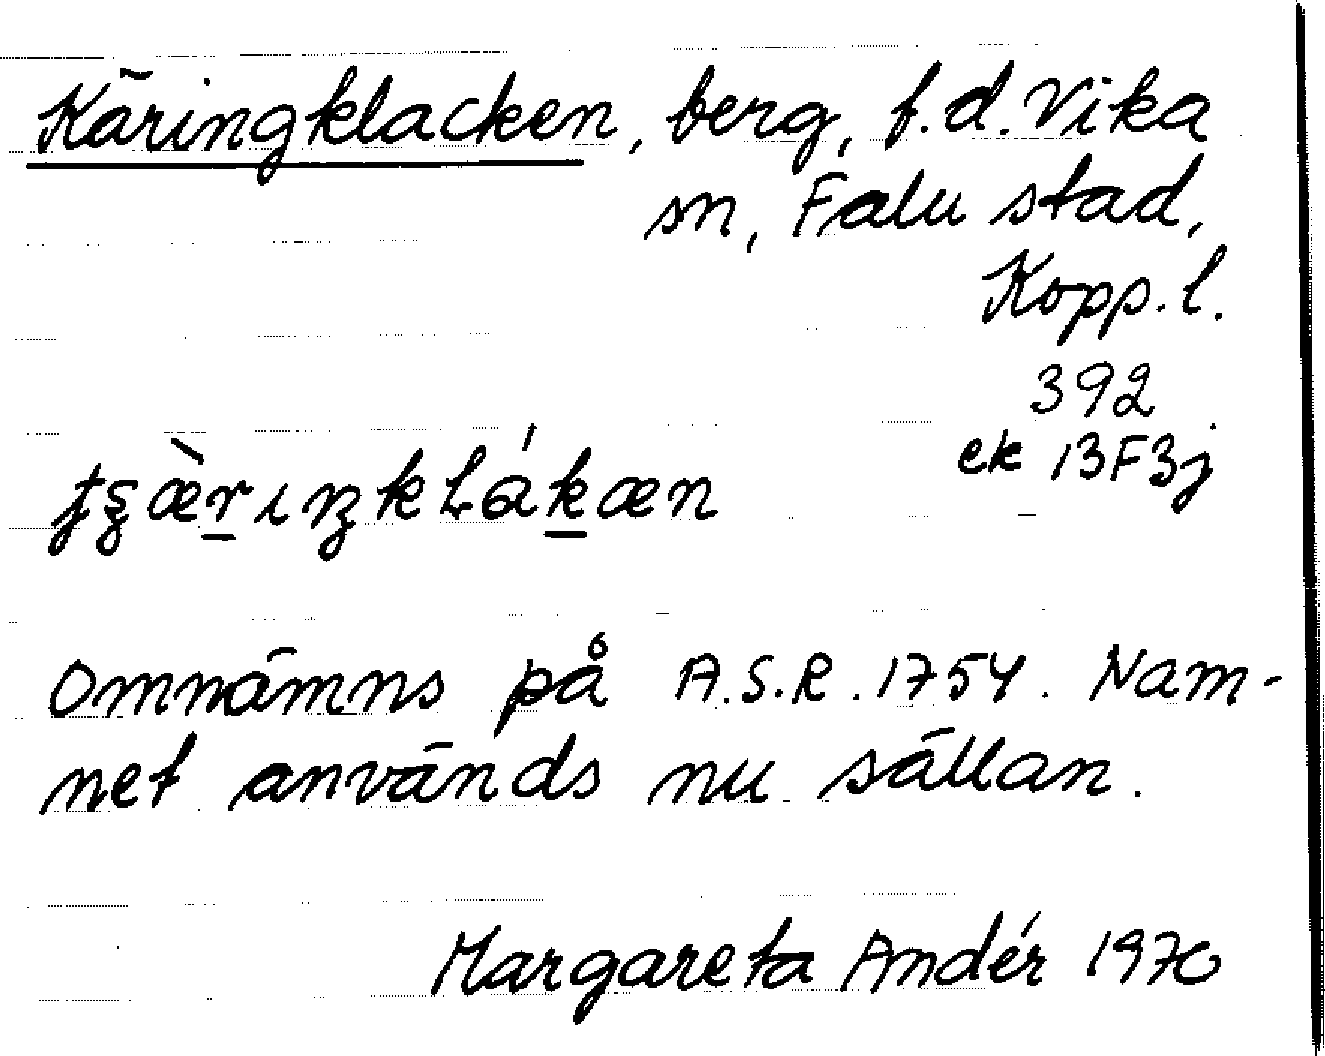 Käringklacken, berg, f.d. Vika
sn, Falu stad,
Kopp. l.
392
ek 13F3j
Omnämns på A.S.R. 1754. Nam-
net används nu sällan.
Margareta Andér 1970